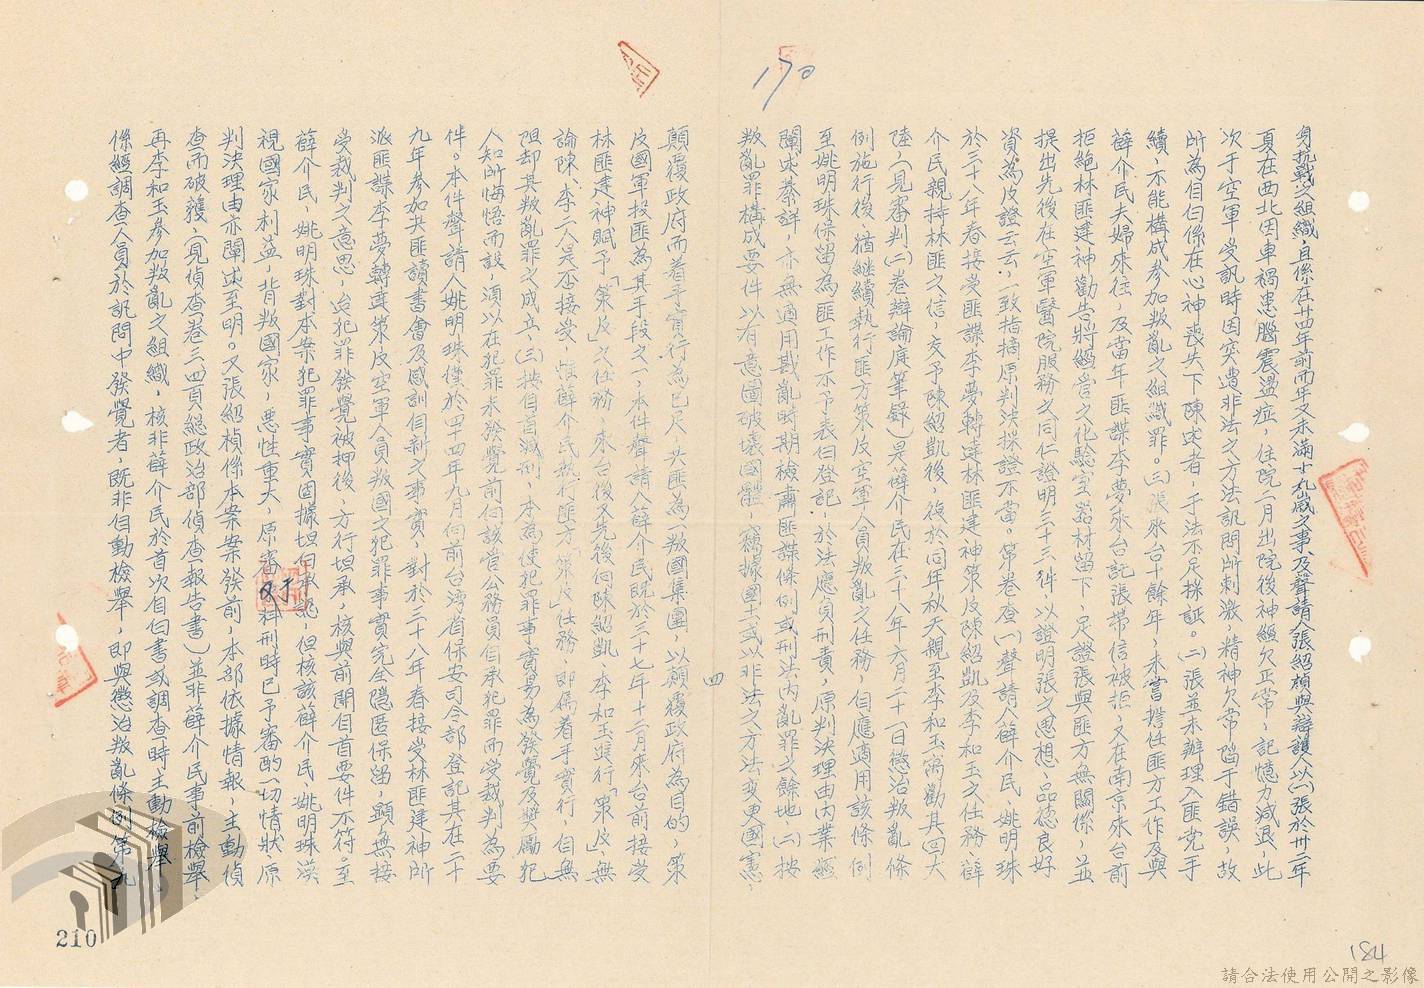 170
身抗戰之組織，且係在廿四年前而年又未滿十九歲之事及聲請人張紹楨與辯護人以㈠張於卅二年
夏在西北因車禍患腦震盪症，住院二月出院後神經欠正常，記憶力減退，此
次于空軍受訊時因突遭非法之方法訊問所刺激，精神欠常陷于錯誤，故
所為自白係在心神喪失下陳述者，于法不足採証。㈡張並未辦理入匪党手
續，不能構成參加叛亂之組織罪。㈢張來台十餘年，未嘗擔任匪方工作及與
薛介民夫婦來往，及當年匪諜李夢來台託張帶信被拒，又在南京來台前
拒絕林匪達神勸告將經營之化驗室器材留下，足證張與匪方無關係，並
提出先後在空軍醫院服務之同仁證明三十三件，以證明張之思想、品德良好
資為反證云云，一致指摘原判決採證不當。第卷查㈠聲請人薛介民、姚明珠
於三十八年春接受匪諜李夢轉達林匪達神策反陳紹凱及李和玉之任務，薛
介民親持林匪之信，交予陳紹凱後，復於同年秋天親至李和玉寓勸其回大
陸，（見審判㈡卷辯論庭筆錄）是薛介民在三十八年六月二十一日懲治叛亂條
例施行後，猶繼續執行匪方策反空軍人員叛亂之任務，自應適用該條例
至姚明珠保留為匪工作不予表白登記，於法應負刑責，原判決理由內業經
闡述綦詳，亦無適用戡亂時期檢肅匪諜條例或刑法內亂罪之餘地㈡按
叛亂罪構成要件以有意圖破壞國體，竊據國土或以非法之方法變更國憲，
四
顛覆政府而着手實行為已足，共匪為一叛國集團，以顛覆政府為目的，策
反國軍投匪為其手段之一，本件聲請人薛介民既於三十七年十二月來台前接受
林匪達神賦予「策反」之任務，來台後又先後向陳紹凱、李和玉進行「策反」無
論陳、李二人是否接受，惟薛介民執行匪方「策反」任務，即係着手實行，自無
阻却其叛亂罪之成立，㈢按自首減刑，本為使犯罪事實易為發覺及獎勵犯
人知所悔悟而設，須以在犯罪未發覺前向該管公務員自承犯罪而受裁判為要
件。本件聲請人姚明珠僅於四十四年九月向前台湾省保安司令部登記其在二十
九年參加共匪讀書會及感訓自新之事實，對於三十八年春接受林匪達神所
派匪諜李夢轉達策反空軍人員叛國之犯罪事實完全隱匿保留，顯無接
受裁判之意思，迨犯罪發覺被押後，方行坦承，核與前開自首要件不符。至
薛介民、姚明珠對本案犯罪事實固據坦白承認，但核該薛介民、姚明珠漠
視國家利益，背叛國家，惡性重大，原審對科刑時已予審酌一切情狀，原
判決理由亦闡述至明。又張紹楨係本案案發前，本部依據情報，主動偵
查而破獲，（見偵查卷三四頁總政治部偵查報告書）並非薛介民事前檢舉，
再李和玉參加叛亂之組織，核非薛介民於首次自白書或調查時主動檢舉，
係經調查人員於訊問中發覺者，既非自動檢舉，即與懲治叛亂條例第九
210
184
請合法使用公開之影像